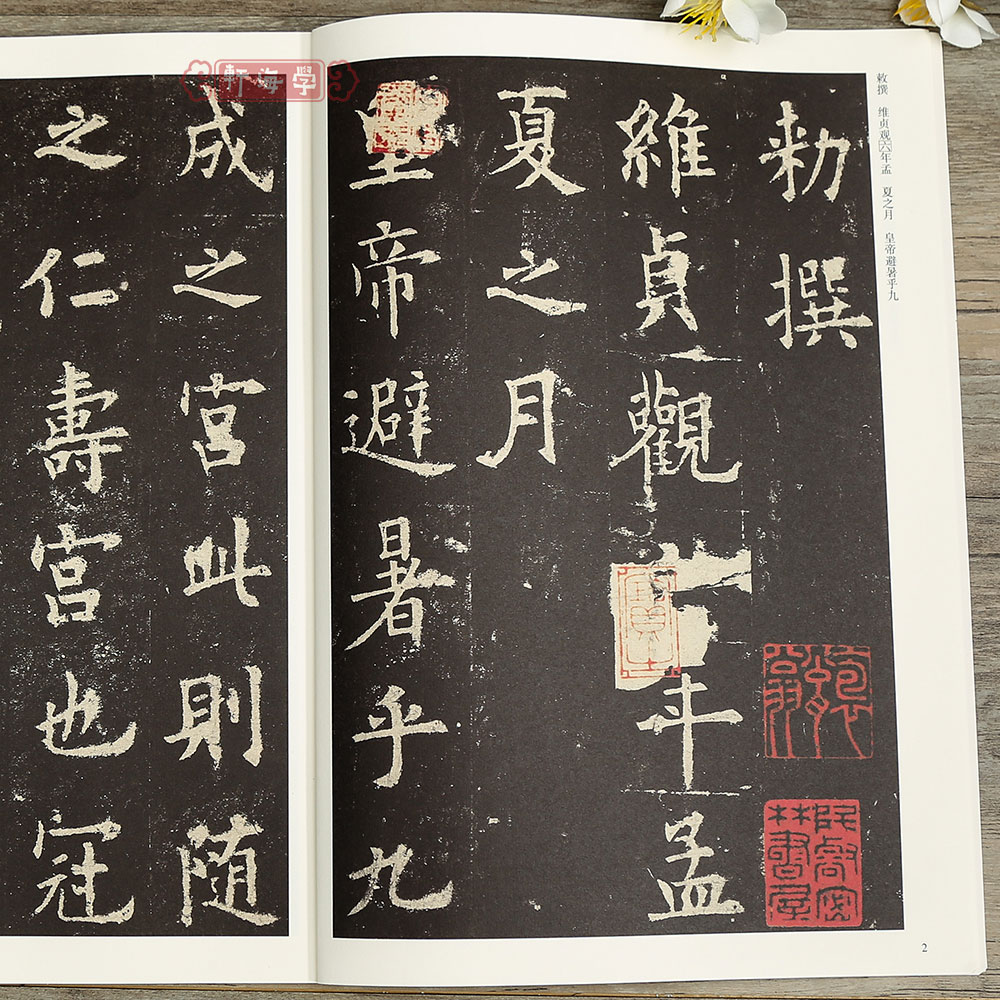 勅撰
維貞觀年孟
夏之月
皇帝避暑乎九
成之宮此則随
之仁壽宮也冠
敕撰 维贞观六年孟 夏之月 皇帝避暑乎九
2
軒海學